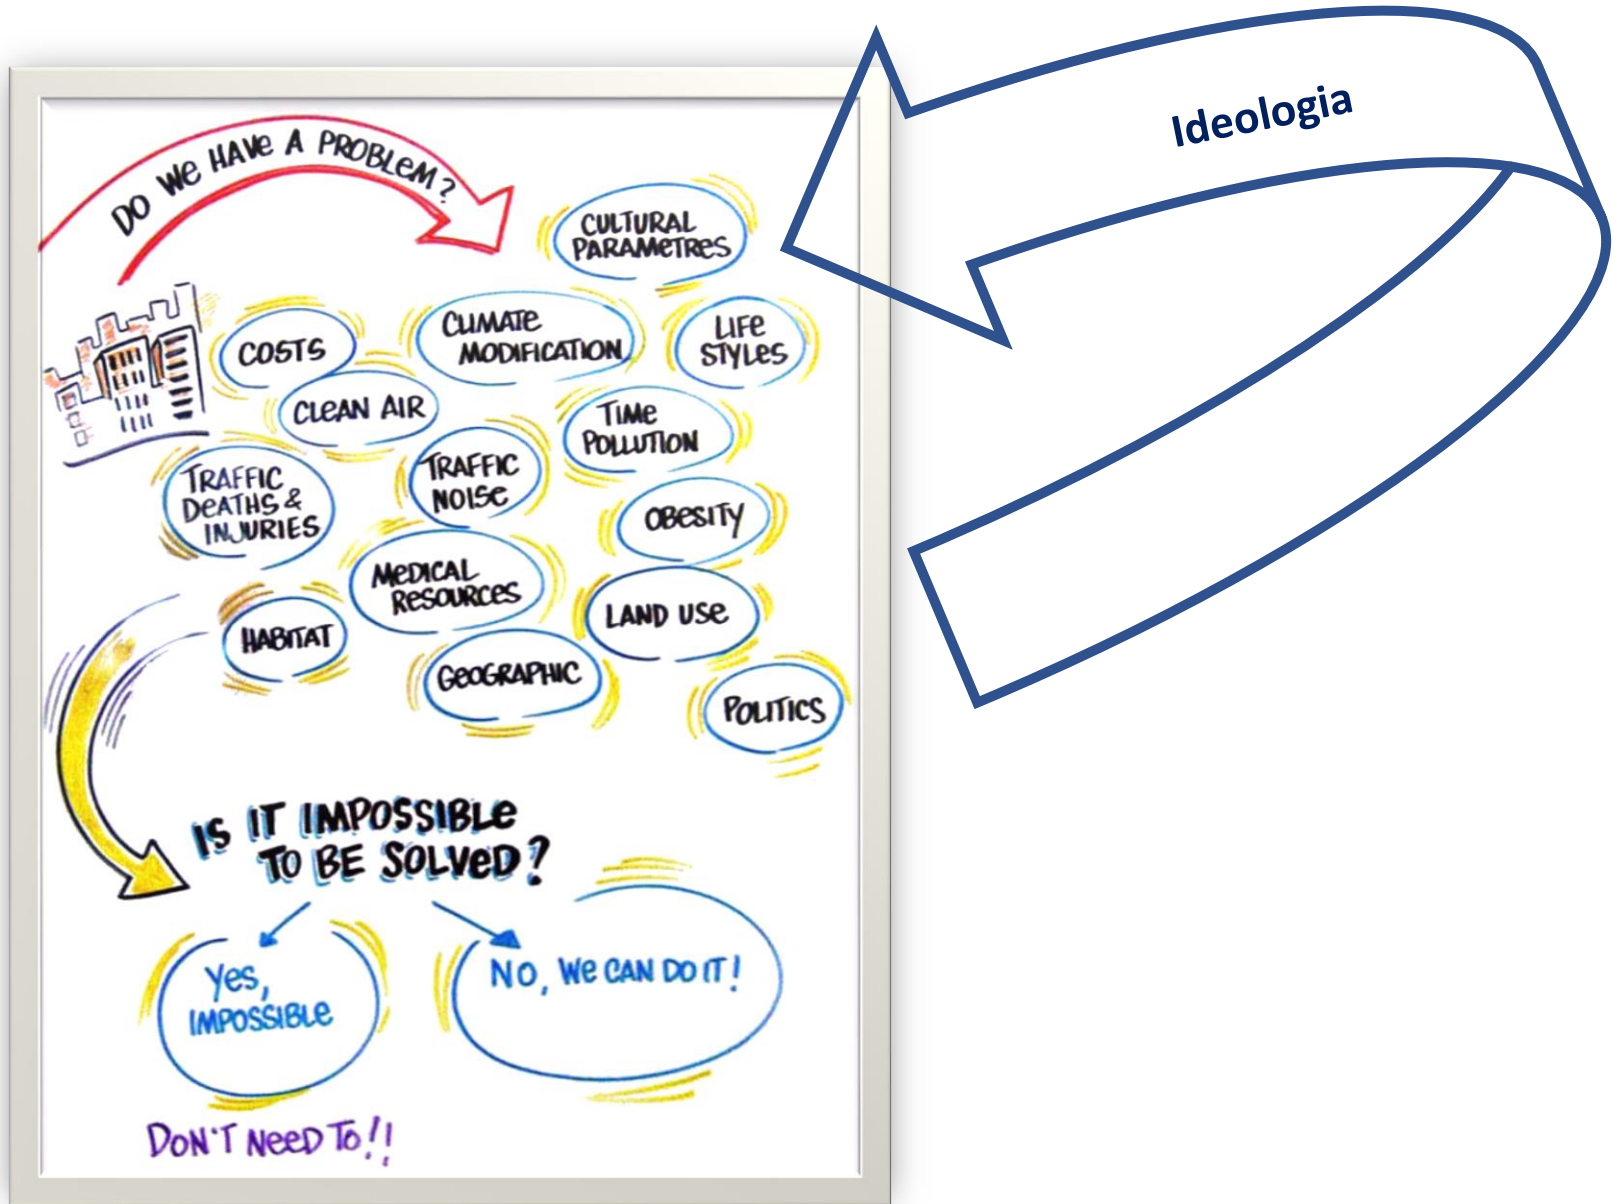 Ideologia
DO WE HAVE A PROBLEM?
CULTURAL
PARAMETRES
COSTS
CLIMATE
MODIFICATION
LIFE
STYLES
CLEAN AIR
TIME
POLLUTION
TRAFFIC
DEATHS &
INJURIES
TRAFFIC
NOISE
OBESITY
MEDICAL
RESOURCES
LAND USE
HABITAT
GEOGRAPHIC
POLITICS
IS IT IMPOSSIBLE
TO BE SOLVED?
Yes,
IMPOSSIBLE
NO, WE CAN DO IT!
DON'T NEED TO!!